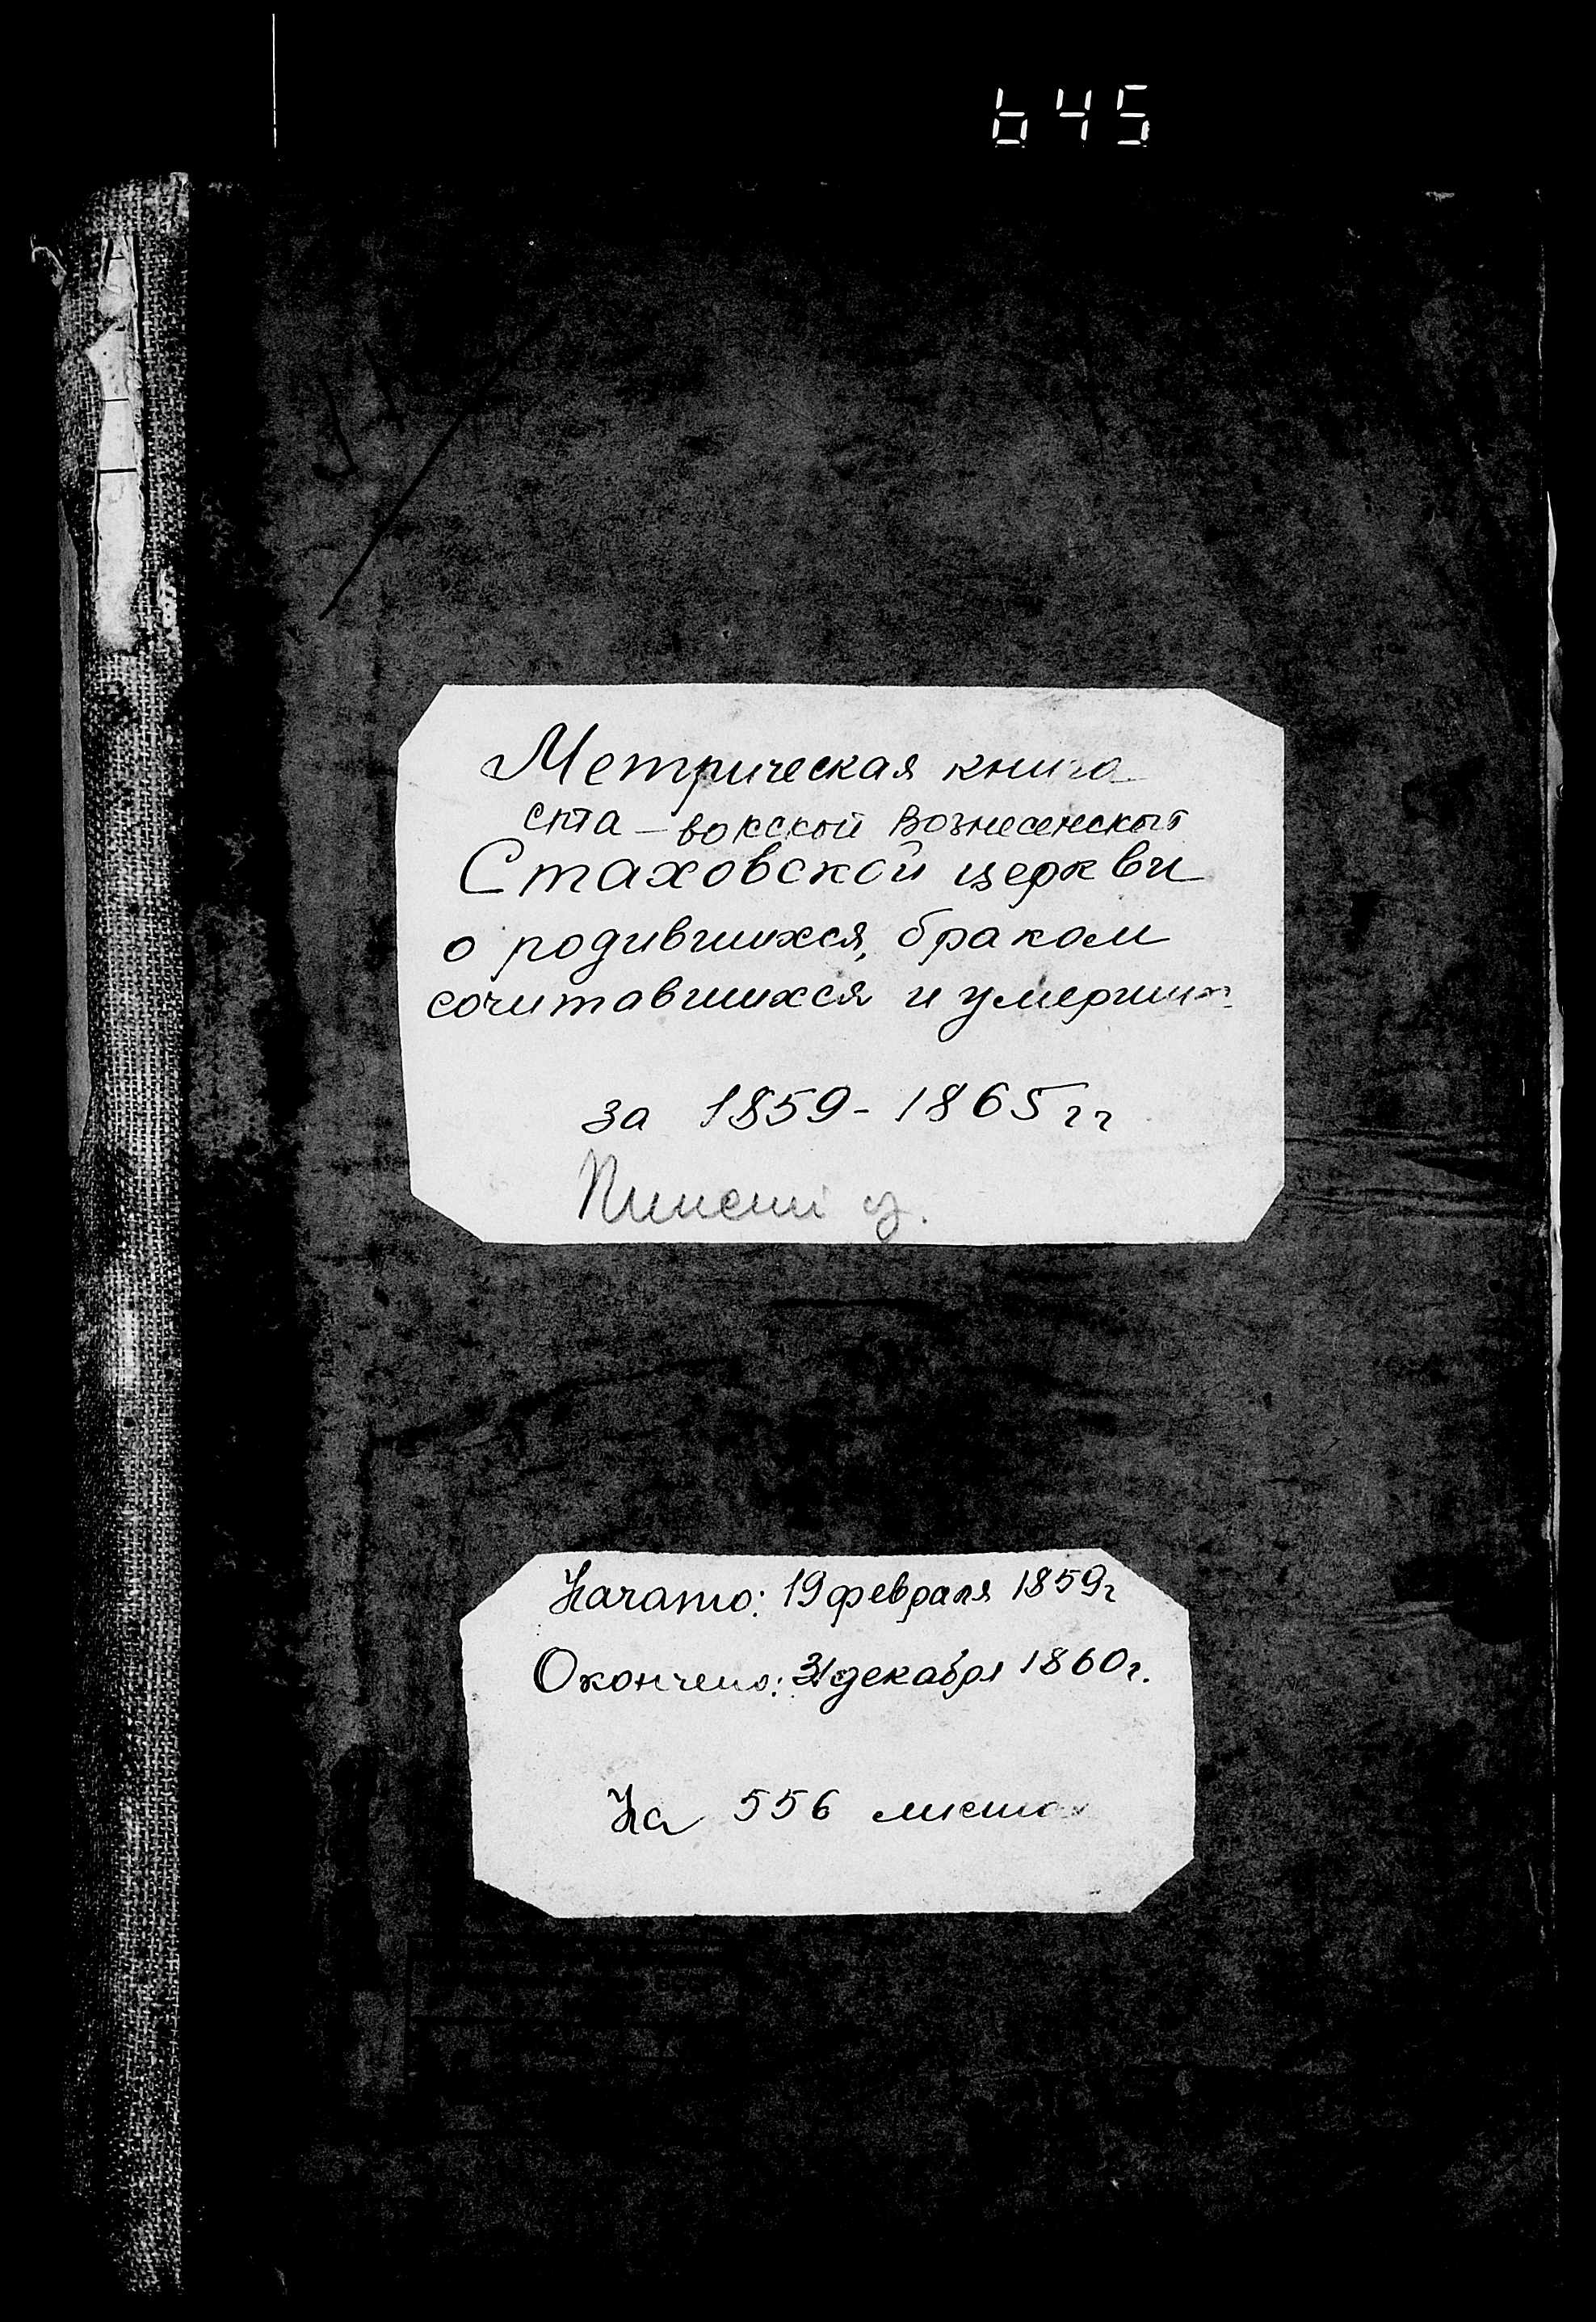 645
Метрическая книга
Вознесенской
Стаховской церкви
о родившихся, браком
сочитавшихся и умерших
за 1859-1865 гг
Пинский у.
Начато: 19 февраля 1859г
Окончено: 31 декабря 1860г.
На 556 листах